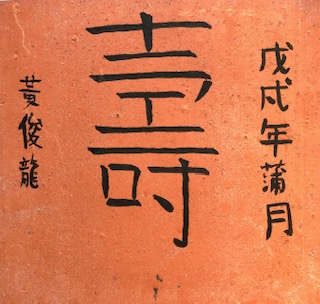 戊戌年蒲月
壽
黃俊龍